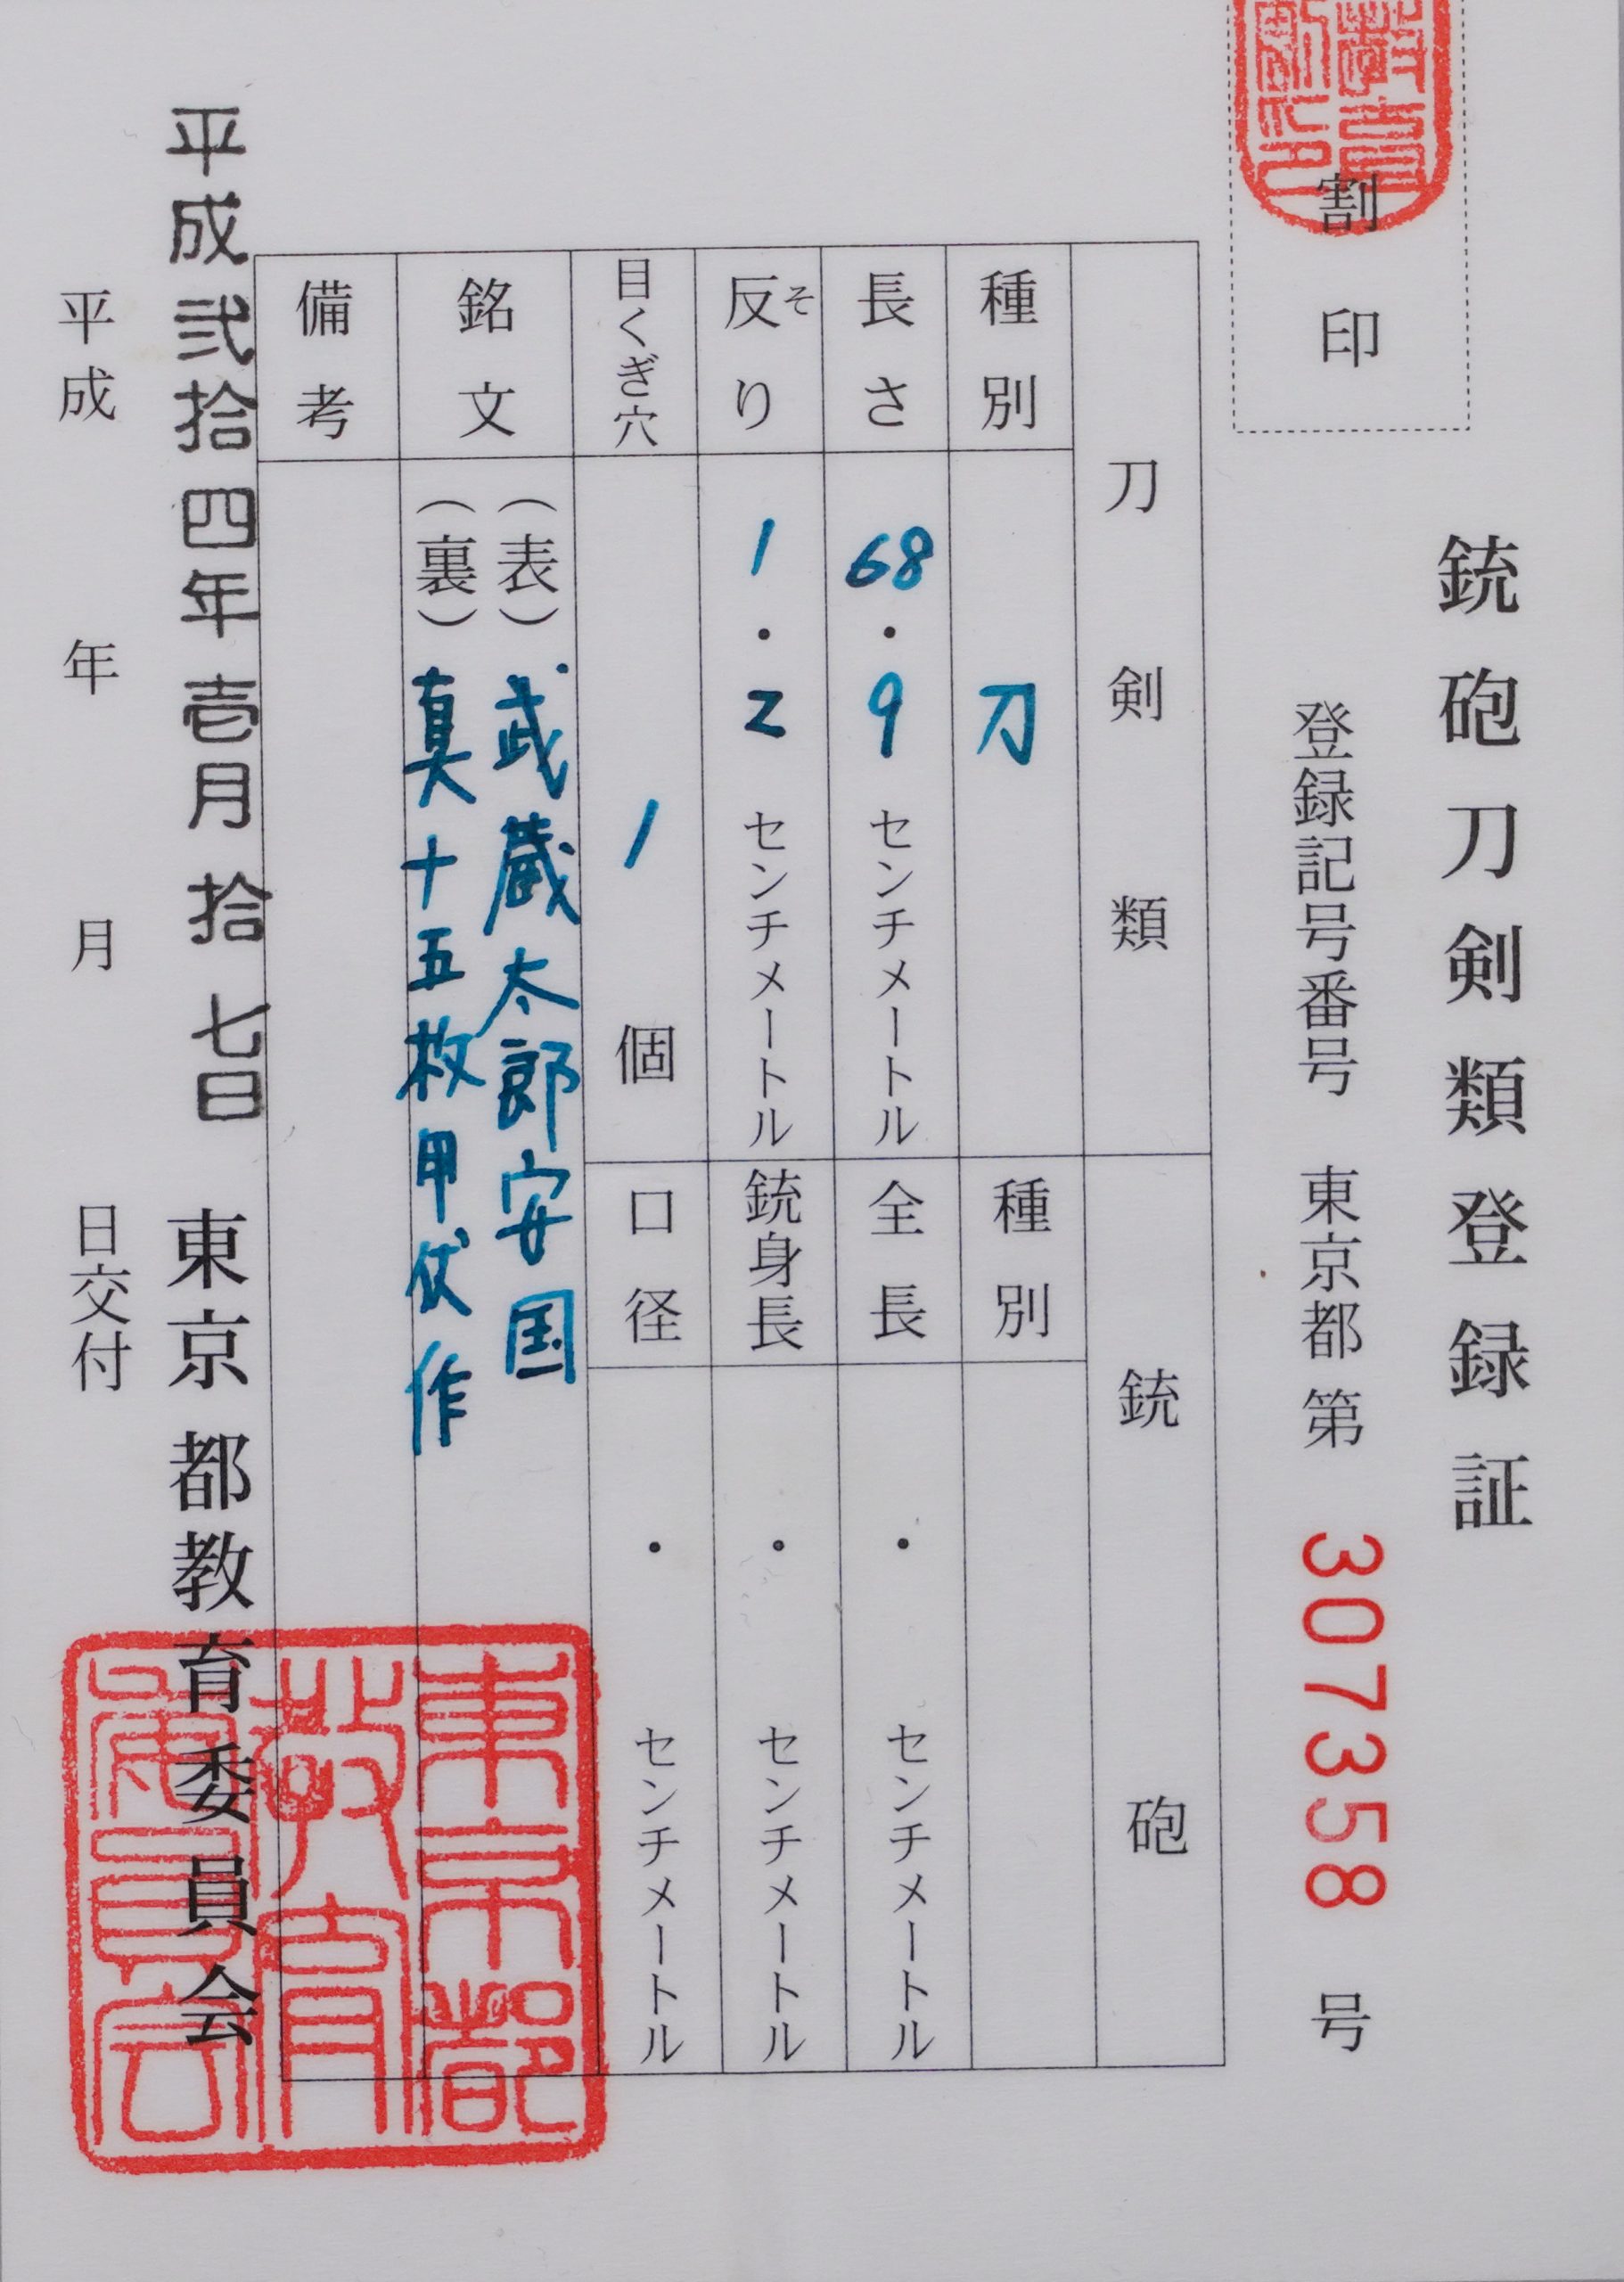 割印
銃砲刀剣類登録証
登録記号番号 東京都 第 307358 号
刀剣類
銃砲
種別 刀
種別
長さ 68.9 センチメートル
全長 ・ センチメートル
反り そ 1.2 センチメートル
銃身長 ・ センチメートル
目くぎ穴 1 個
口径 ・ センチメートル
銘文 (表) 武蔵太郎安国
(裏) 真十五枚甲伏作
備考
平成弐拾四年壱月拾七日 東京都教育委員会
平成 年 月 日交付
東京都
教育
委員会